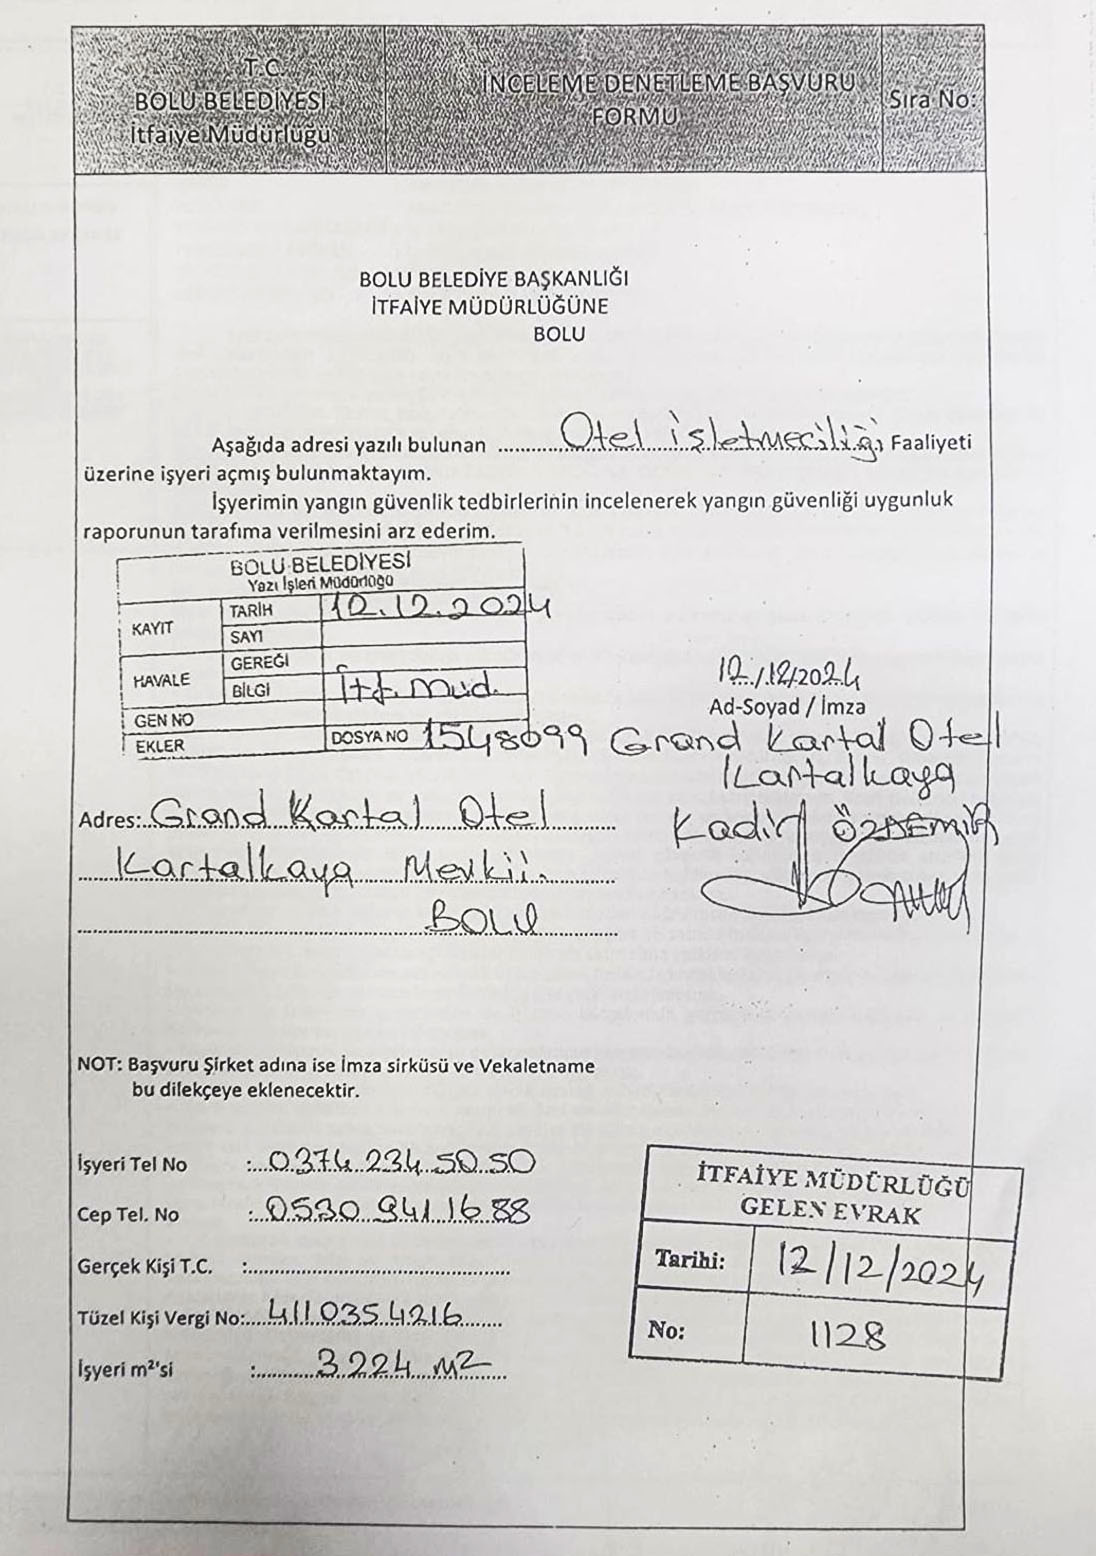 T.C.
BOLU BELEDİYESİ
İtfaiye Müdürlüğü
İNCELEME DENETLEME BAŞVURU
FORMU
Sıra No:
BOLU BELEDİYE BAŞKANLIĞI
İTFAİYE MÜDÜRLÜĞÜNE
BOLU
Aşağıda adresi yazılı bulunan ............ Otel işletmeciliği Faaliyeti
üzerine işyeri açmış bulunmaktayım.
İşyerimin yangın güvenlik tedbirlerinin incelenerek yangın güvenliği uygunluk
raporunun tarafıma verilmesini arz ederim.
BOLU BELEDİYESİ
Yazı İşleri Müdürlüğü
KAYIT
TARİH 12.12.2024
SAYI
HAVALE
GEREĞİ
BİLGİ İtf. Müd.
GEN NO
EKLER
DOSYA NO 1548099
12/12/2024
Ad-Soyad / İmza
Grand Kartal Otel
Kartalkaya
Kadir ÖZDEMİR
Adres: Grand Kartal Otel
Kartalkaya Mevkii
BOLU
NOT: Başvuru Şirket adına ise İmza sirküsü ve Vekaletname
bu dilekçeye eklenecektir.
İşyeri Tel No : 0374 234 50 50
Cep Tel. No : 0530 941 16 88
Gerçek Kişi T.C. :
Tüzel Kişi Vergi No: 4110354216
İşyeri m²'si : 3224 m2
İTFAİYE MÜDÜRLÜĞÜ
GELEN EVRAK
Tarihi: 12/12/2024
No: 1128